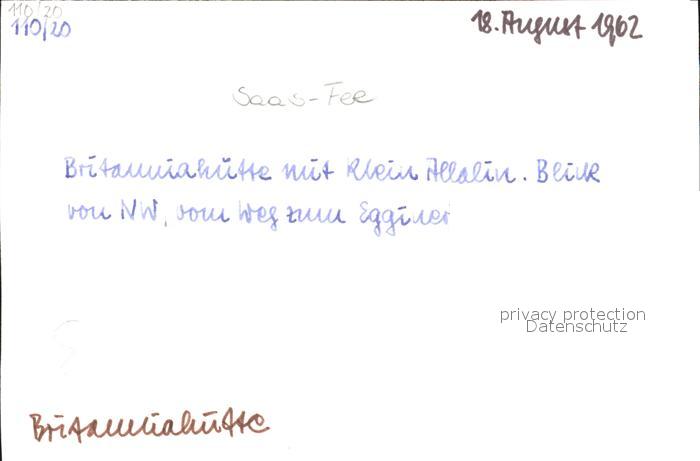 110/20
110/20
18. August 1962
Saas-Fee
Britanniahütte mit Klein Allalin. Blick
von NW, vom Weg zum Egginer
privacy protection
Datenschutz
Britanniahütte